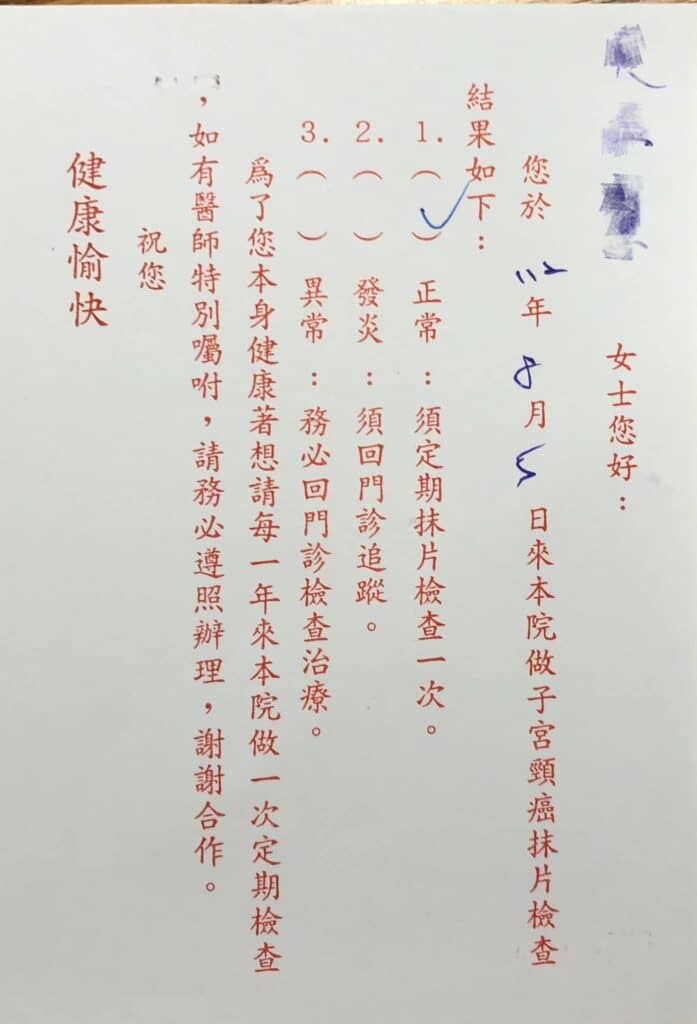 女士您好：
您於112年8月5日來本院做子宮頸癌抹片檢查
結果如下：
1.（✓）正常：須定期抹片檢查一次。
2.（ ）發炎：須回門診追蹤。
3.（ ）異常：務必回門診檢查治療。
爲了您本身健康著想請每一年來本院做一次定期檢查
，如有醫師特別囑咐，請務必遵照辦理，謝謝合作。
祝您
健康愉快